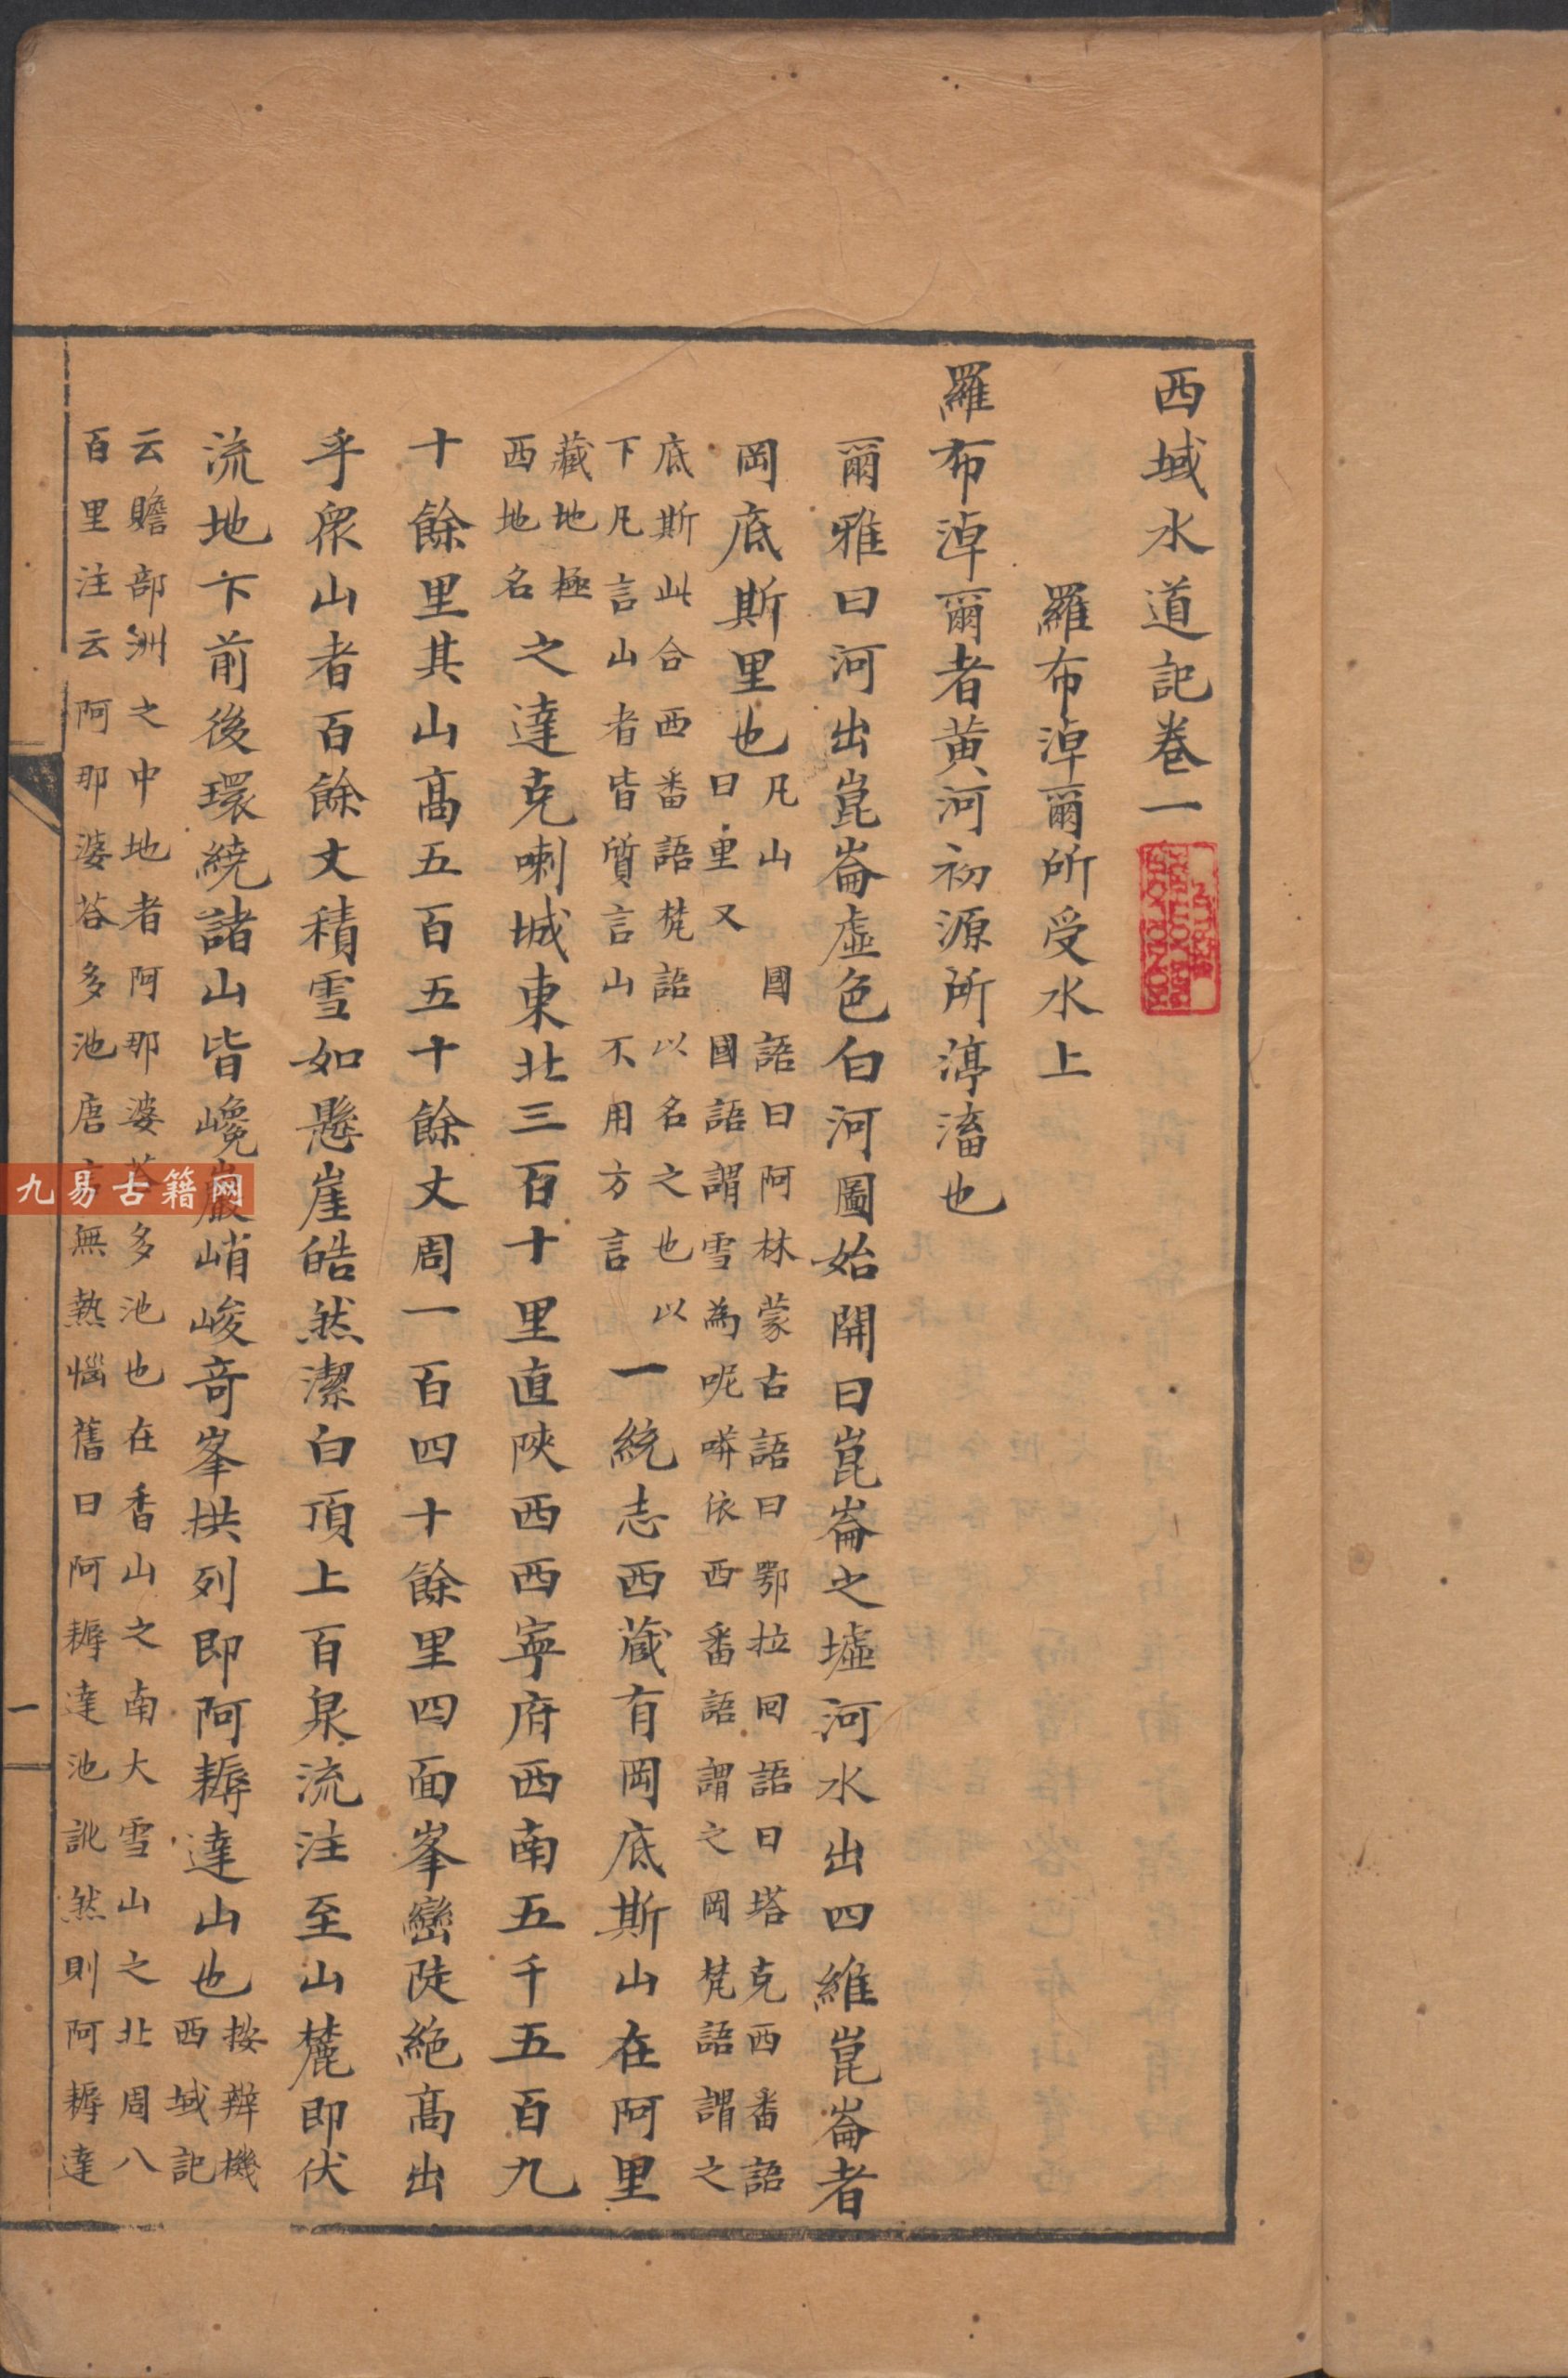 西域水道記卷一
羅布淖爾所受水上
羅布淖爾者黃河初源所渟滀也
爾雅曰河出崑崙虛色白河圖始開曰崑崙之墟河水出四維崑崙者
岡底斯里也
凡山 國語曰阿林蒙古語曰鄂拉回語曰塔克西番語
曰里又 國語謂雪為呢蟒依西番語謂之岡梵語謂之
底斯此合西番語梵語以名之也以
下凡言山者皆質言山不用方言
一統志西藏有岡底斯山在阿里
藏地極
西地名
之達克喇城東北三百十里直陝西西寧府西南五千五百九
十餘里其山高五百五十餘丈周一百四十餘里四面峯巒陡絕高出
乎眾山者百餘丈積雪如懸崖皓然潔白頂上百泉流注至山麓即伏
流地下前後環繞諸山皆巉巖峭峻奇峯拱列即阿耨達山也
按辯機
西域記
云贍部洲之中地者阿那婆荅多池也在香山之南大雪山之北周八
百里注云阿那婆荅多池唐言無熱惱舊曰阿耨達池訛然則阿耨達
一
九易古籍网